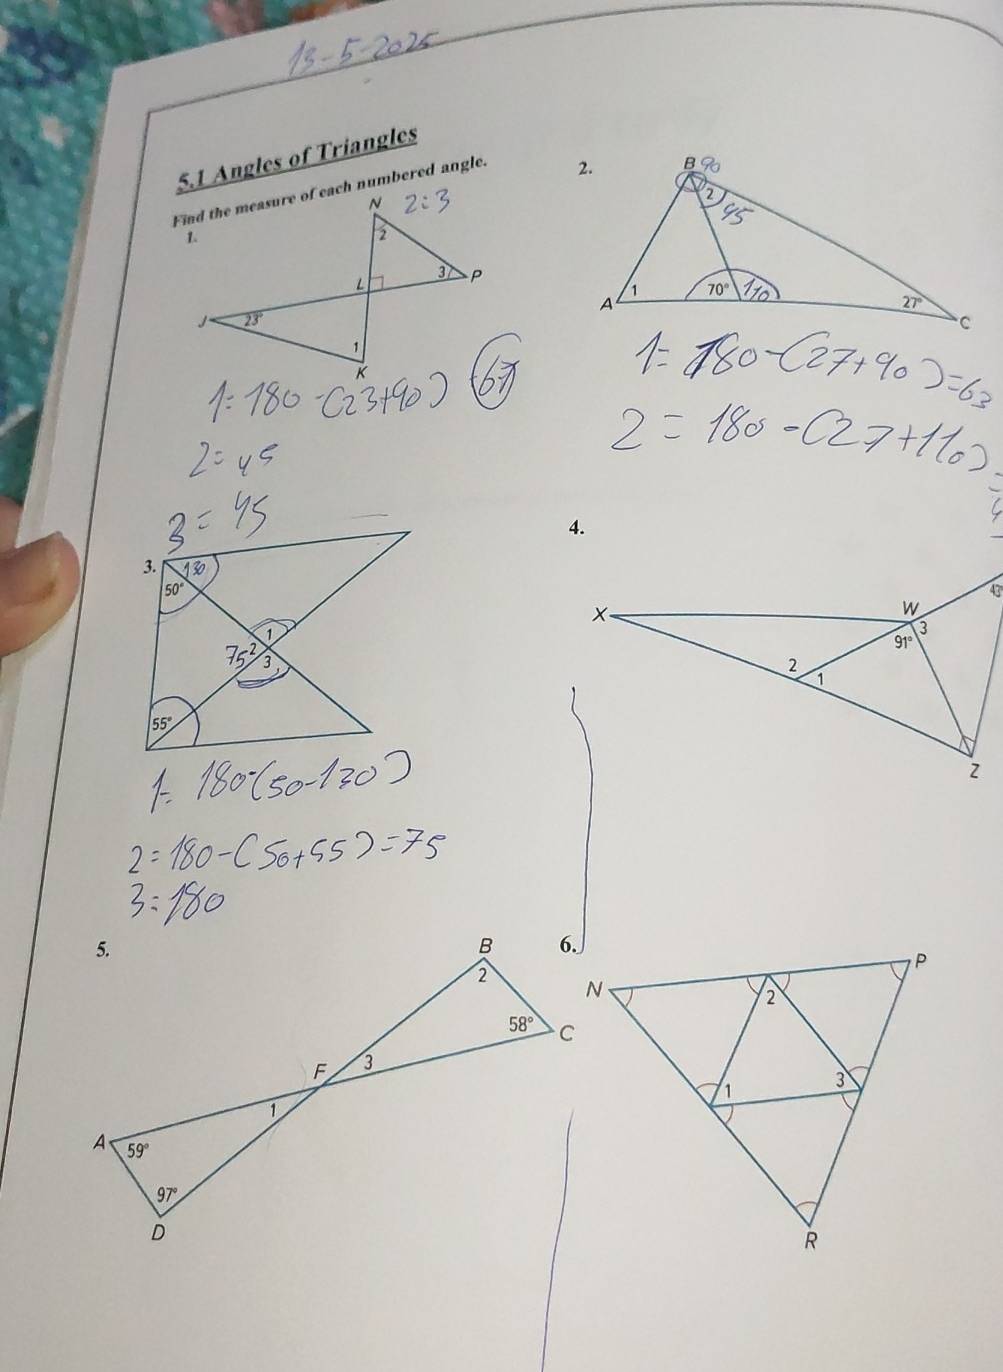 13-5-2025
5.1 Angles of Triangles
Find the measure of each numbered angle.
1.
N 2:3
2
L
3 P
J 23°
1
K
1=180-(23+90) 67
2=45
3=45
2.
B 90
2
45
A 1 70° 110 27° C
1=180-(27+90)=63
2=180-(27+110)
3.
130
50°
1
75 2
3
55°
1=180-(50-130)
2=180-(50+55)=75
3=180
4.
43°
X W
3
91°
2
1
Z
5.
B
2
58° C
F 3
1
A 59°
97°
D
6.
N P
2
1 3
R